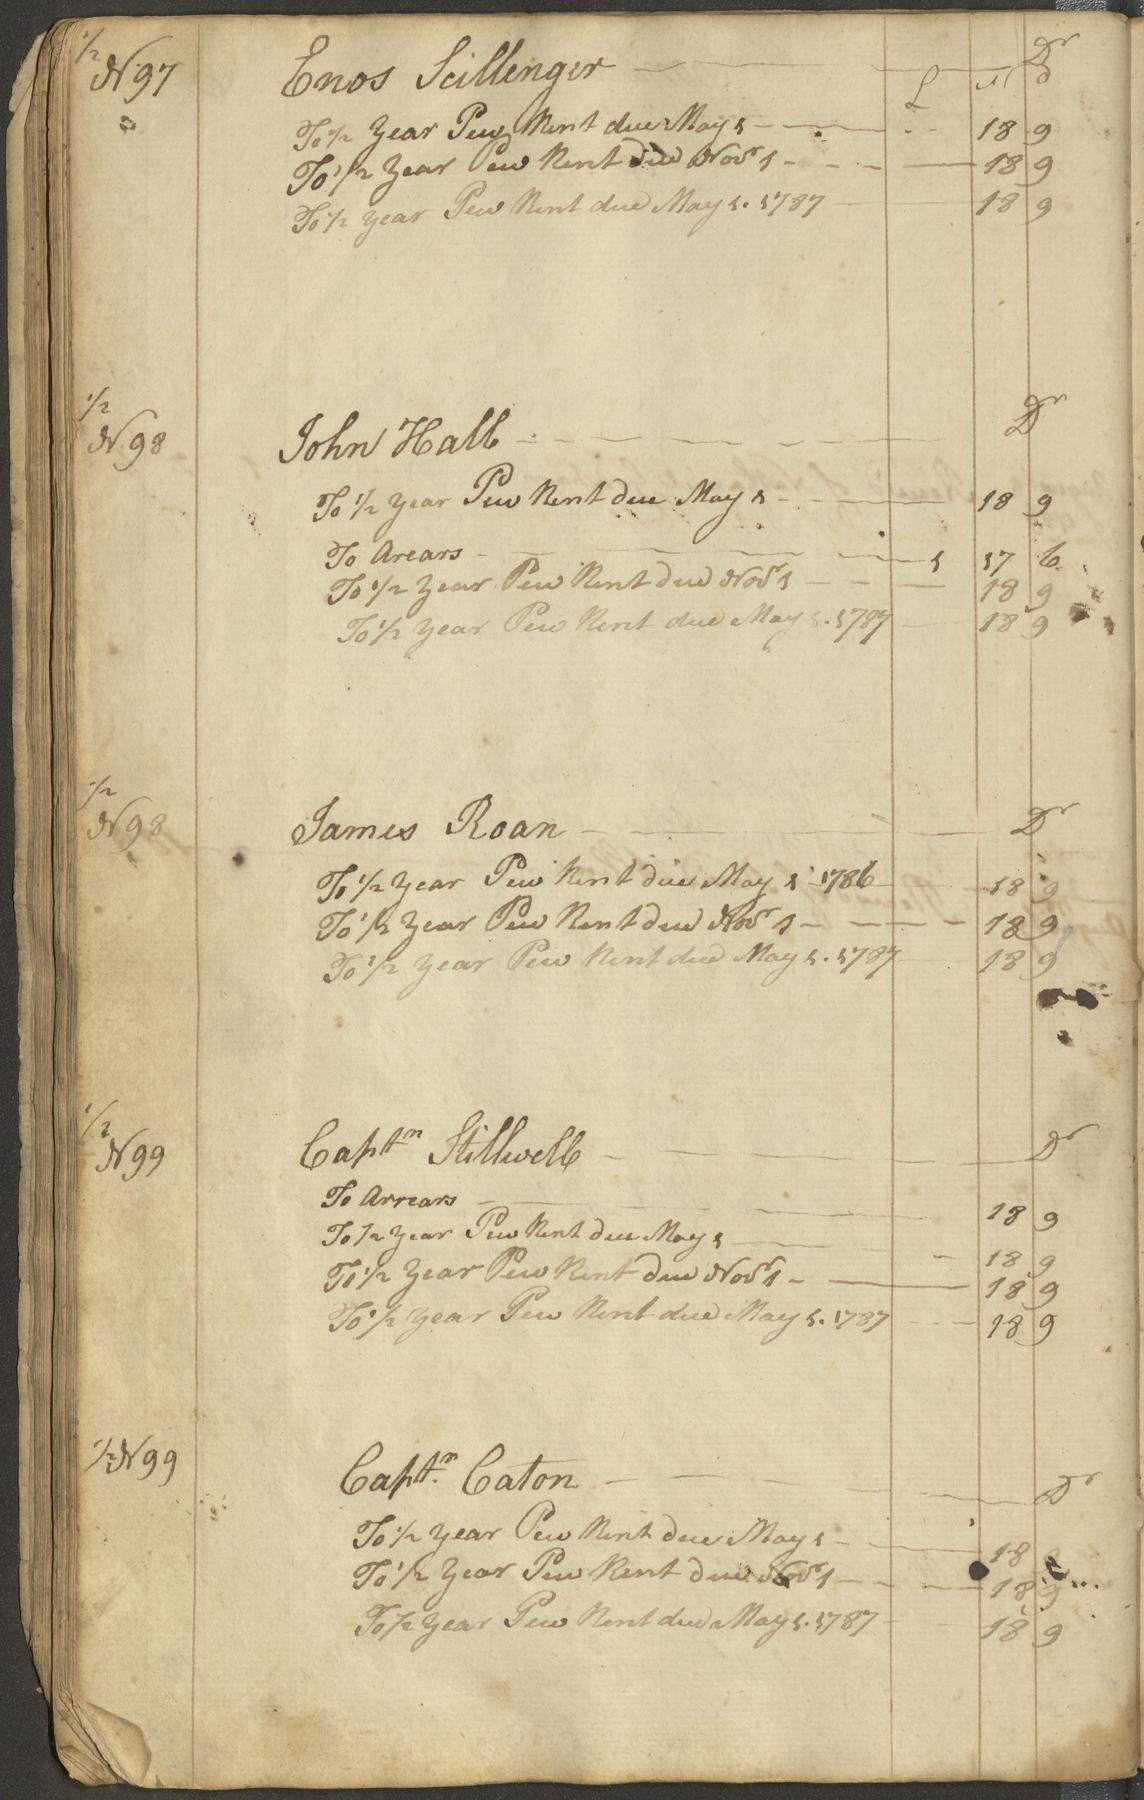 1/2 N 97 Enos Scillenger Dr
£ s d
To 1/2 Year Pew Rent due May 1 18 9
To 1/2 Year Pew Rent due Novr 1 18 9
To 1/2 Year Pew Rent due May 1. 1787 18 9
1/2 N 98 John Hall Dr
To 1/2 Year Pew Rent due May 1 18 9
To Arears 1 17 6
To 1/2 Year Pew Rent due Novr 1 18 9
To 1/2 Year Pew Rent due May 1. 1787 18 9
1/2 N 98 James Roan Dr
To 1/2 Year Pew Rent due May 1 1786 18 9
To 1/2 Year Pew Rent due Novr 1 18 9
To 1/2 Year Pew Rent due May 1. 1787 18 9
1/2 N 99 Captn Stillwell Dr
To Arrears 18 9
To 1/2 Year Pew Rent due May 1 18 9
To 1/2 Year Pew Rent due Novr 1 18 9
To 1/2 Year Pew Rent due May 1. 1787 18 9
1/2 N 99 Captn. Caton Dr
To 1/2 Year Pew Rent due May 1 18
To 1/2 Year Pew Rent due Novr 1 18 9
To 1/2 Year Pew Rent due May 1. 1787 18 9